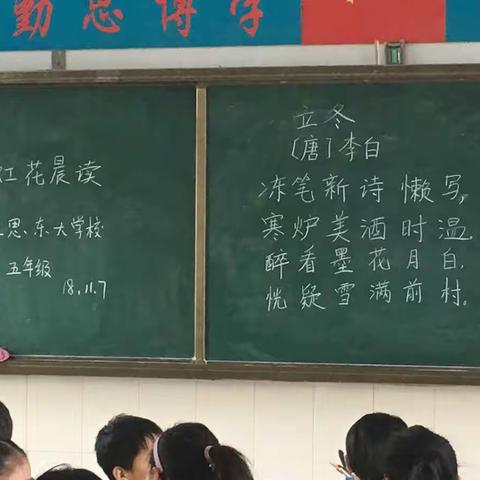 勤思博学
红花晨读
思东大学校
五年级
18.11.7
立冬
[唐]李白
冻笔新诗懒写,
寒炉美酒时温.
醉看墨花月白,
恍疑雪满前村.